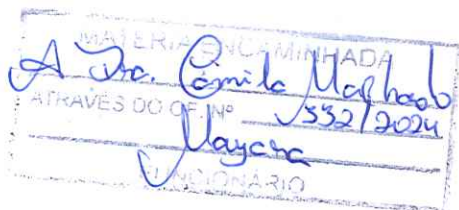 MATÉRIA ENCAMINHADA
A Dra. Camila Machado
ATRAVÉS DO OF. Nº 332/2024
Mayara
FUNCIONÁRIO